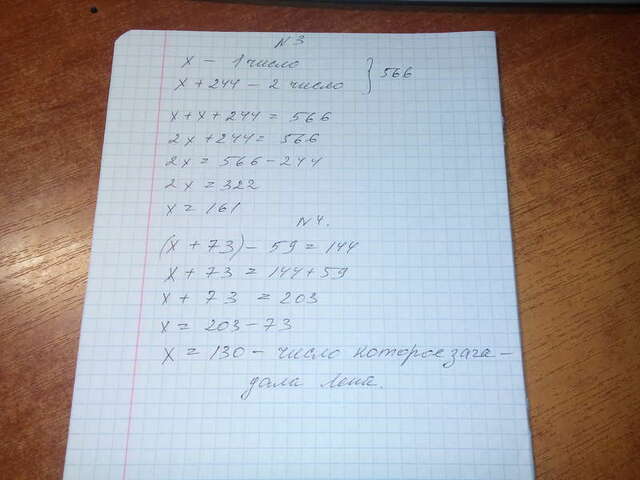 №3
x - 1 число
x + 244 - 2 число } 566
x + x + 244 = 566
2x + 244 = 566
2x = 566 - 244
2x = 322
x = 161
№4.
(x + 73) - 59 = 144
x + 73 = 144 + 59
x + 73 = 203
x = 203 - 73
x = 130 - число которое зага-
дала Лена.